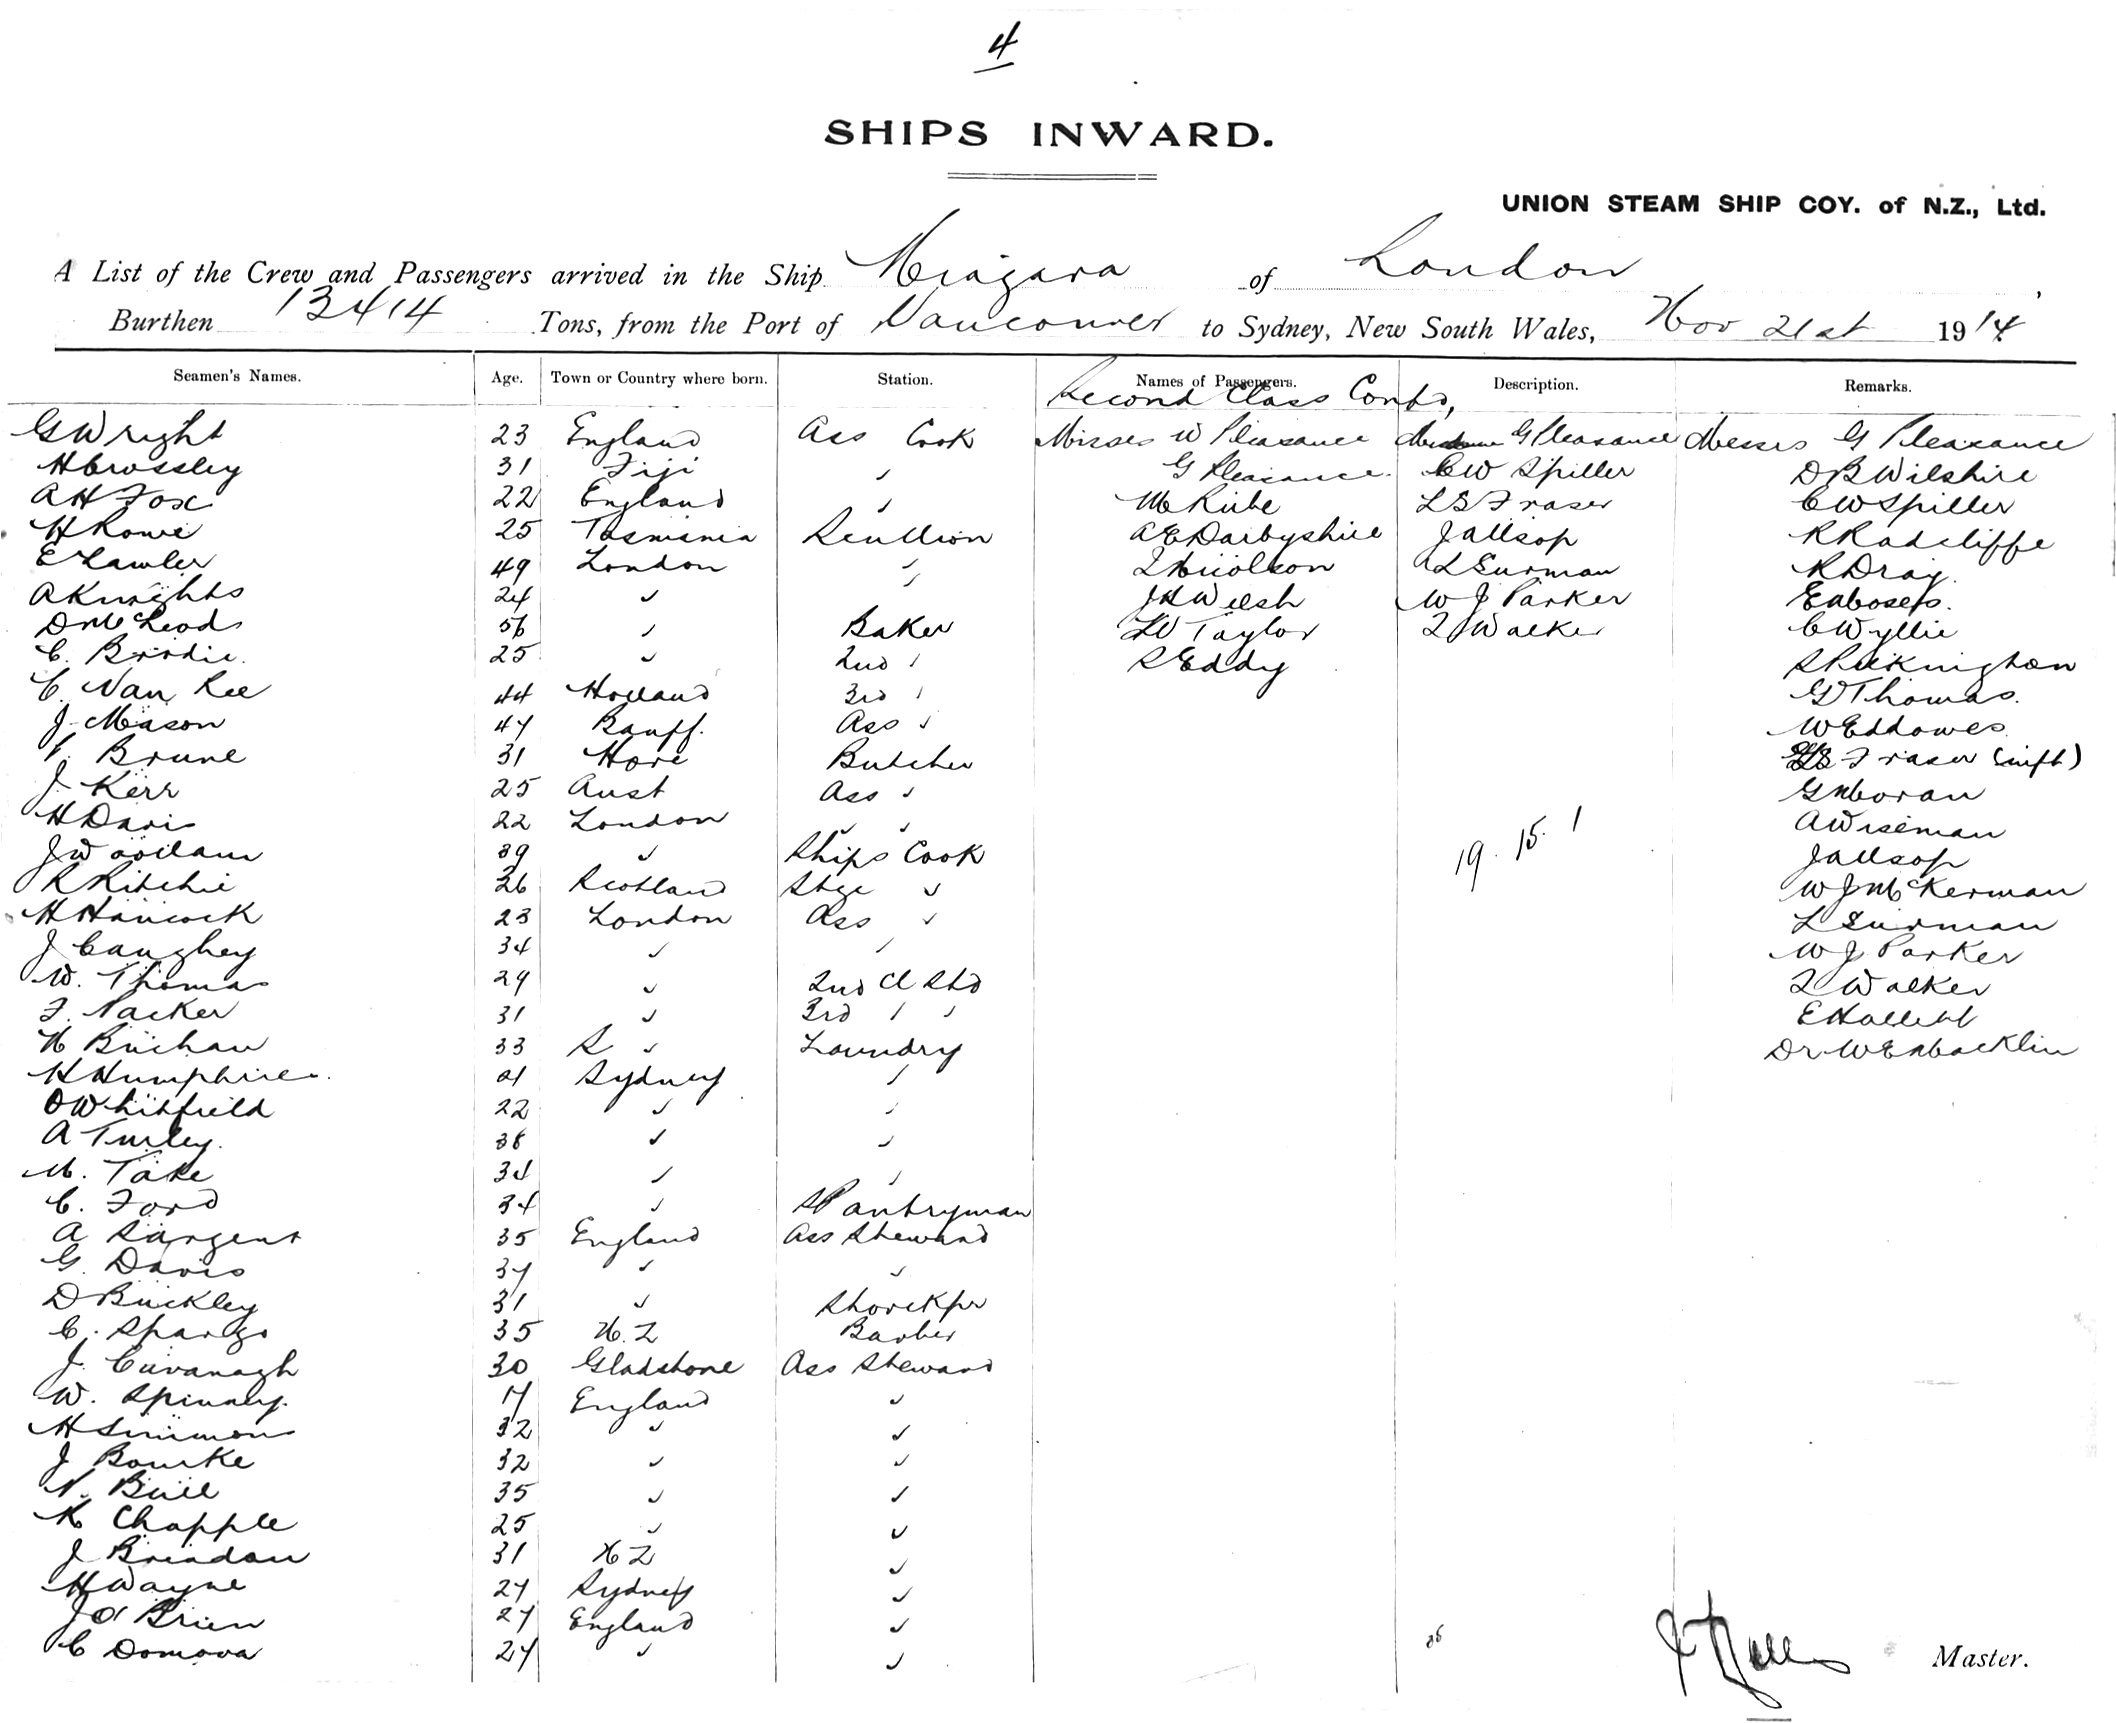 4
SHIPS INWARD.
UNION STEAM SHIP COY. of N.Z., Ltd.
A List of the Crew and Passengers arrived in the Ship Niagara of London
Burthen 13414 Tons, from the Port of Vancouver to Sydney, New South Wales, Nov 21st 1914
Seamen's Names. Age. Town or Country where born. Station. Names of Passengers. Description. Remarks.
Second Class Contd,
G Wright 23 England Ass Cook Misses W Pleasance G Pleasance Messrs G Pleasance
H Crossley 31 Fiji " G Pleasance C W Spiller D B Wilshire
A H Fox 22 England " M L S Fraser C W Spiller
H Rowe 25 Tasmania Scullion A E Darbyshire J Allsop R Radcliffe
E Lawler 49 London " Nicolson L Surman R Dray
A Knights 24 " " J H Welsh W J Parker E
D McLeod 56 " Baker Taylor Walker C Wyllie
C. Brodie 25 " 2nd " S Eddy
C. Van Ree 44 Holland 3rd " G Thomas.
J. Mason 47 Banff. Ass " W Eddowes
V. Brune 31 Hove Butcher L S Fraser (inft)
J Kerr 25 Aust Ass " G Moran
H Davis 22 London " " A Wiseman
J Woollam 39 " Ships Cook 19. 15. 1 J Allsop
R Ritchie 26 Scotland Stge " W J McKerman
H Hancock 23 London Ass " L Surman
J Caughey 34 " " W J Parker
W. Thomas 29 " 2nd Cl Std Walker
F. Packer 31 " 3rd " " E Hallett
H Buchan 33 S " Laundry Dr W E Macklin
H Humphries. 21 Sydney "
O Whitfield 22 " "
A Turley. 38 " "
M. Take 34 " "
C. Ford 34 " S Pantryman
A Sargent 35 England Ass Steward
G. Davis 37 " "
D Buckley 31 " Storekpr
C. Spargo 35 N.Z Barber
J. Cavanagh 30 Gladstone Ass Steward
W. Spinney. 17 England "
H Simmons 32 " "
J Bourke 32 " "
N. Bull 35 " "
K Chapple 25 " "
J Breadan 31 N Z "
H Wayne 27 Sydney "
J O'Brien 27 England "
C Domova 27 " "
Master.